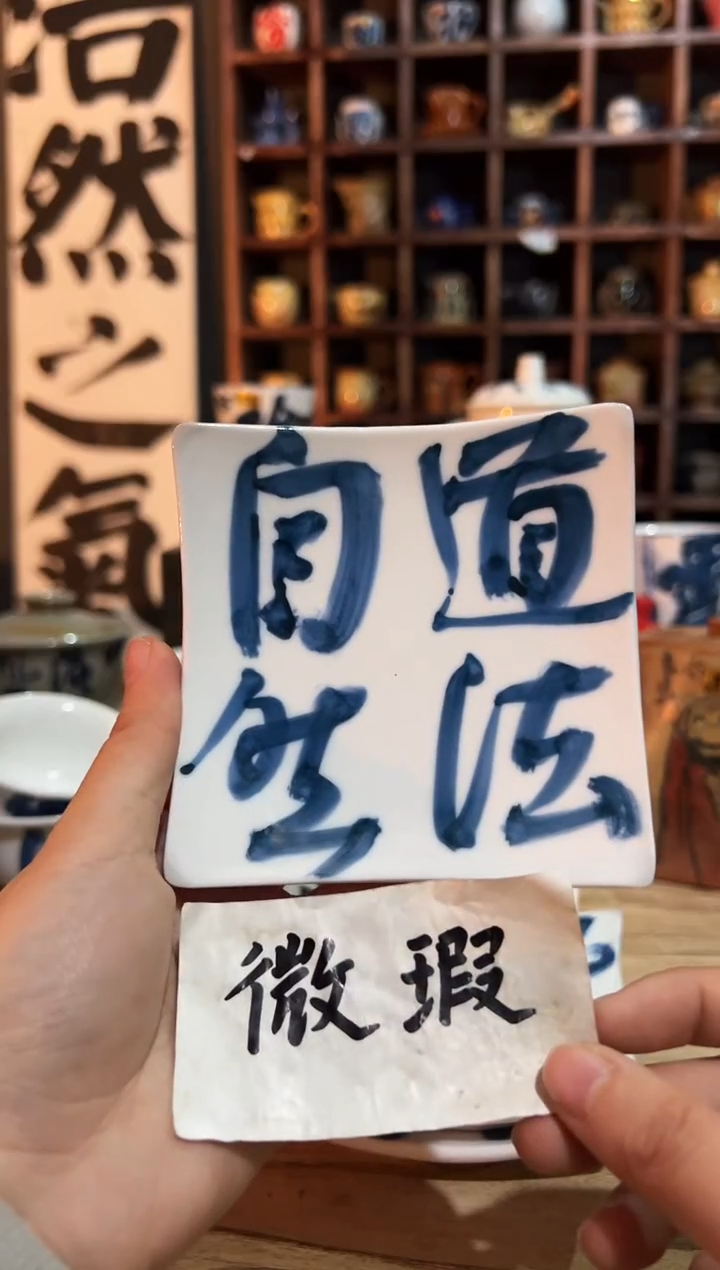 浩然之氣
道法
自然
微瑕